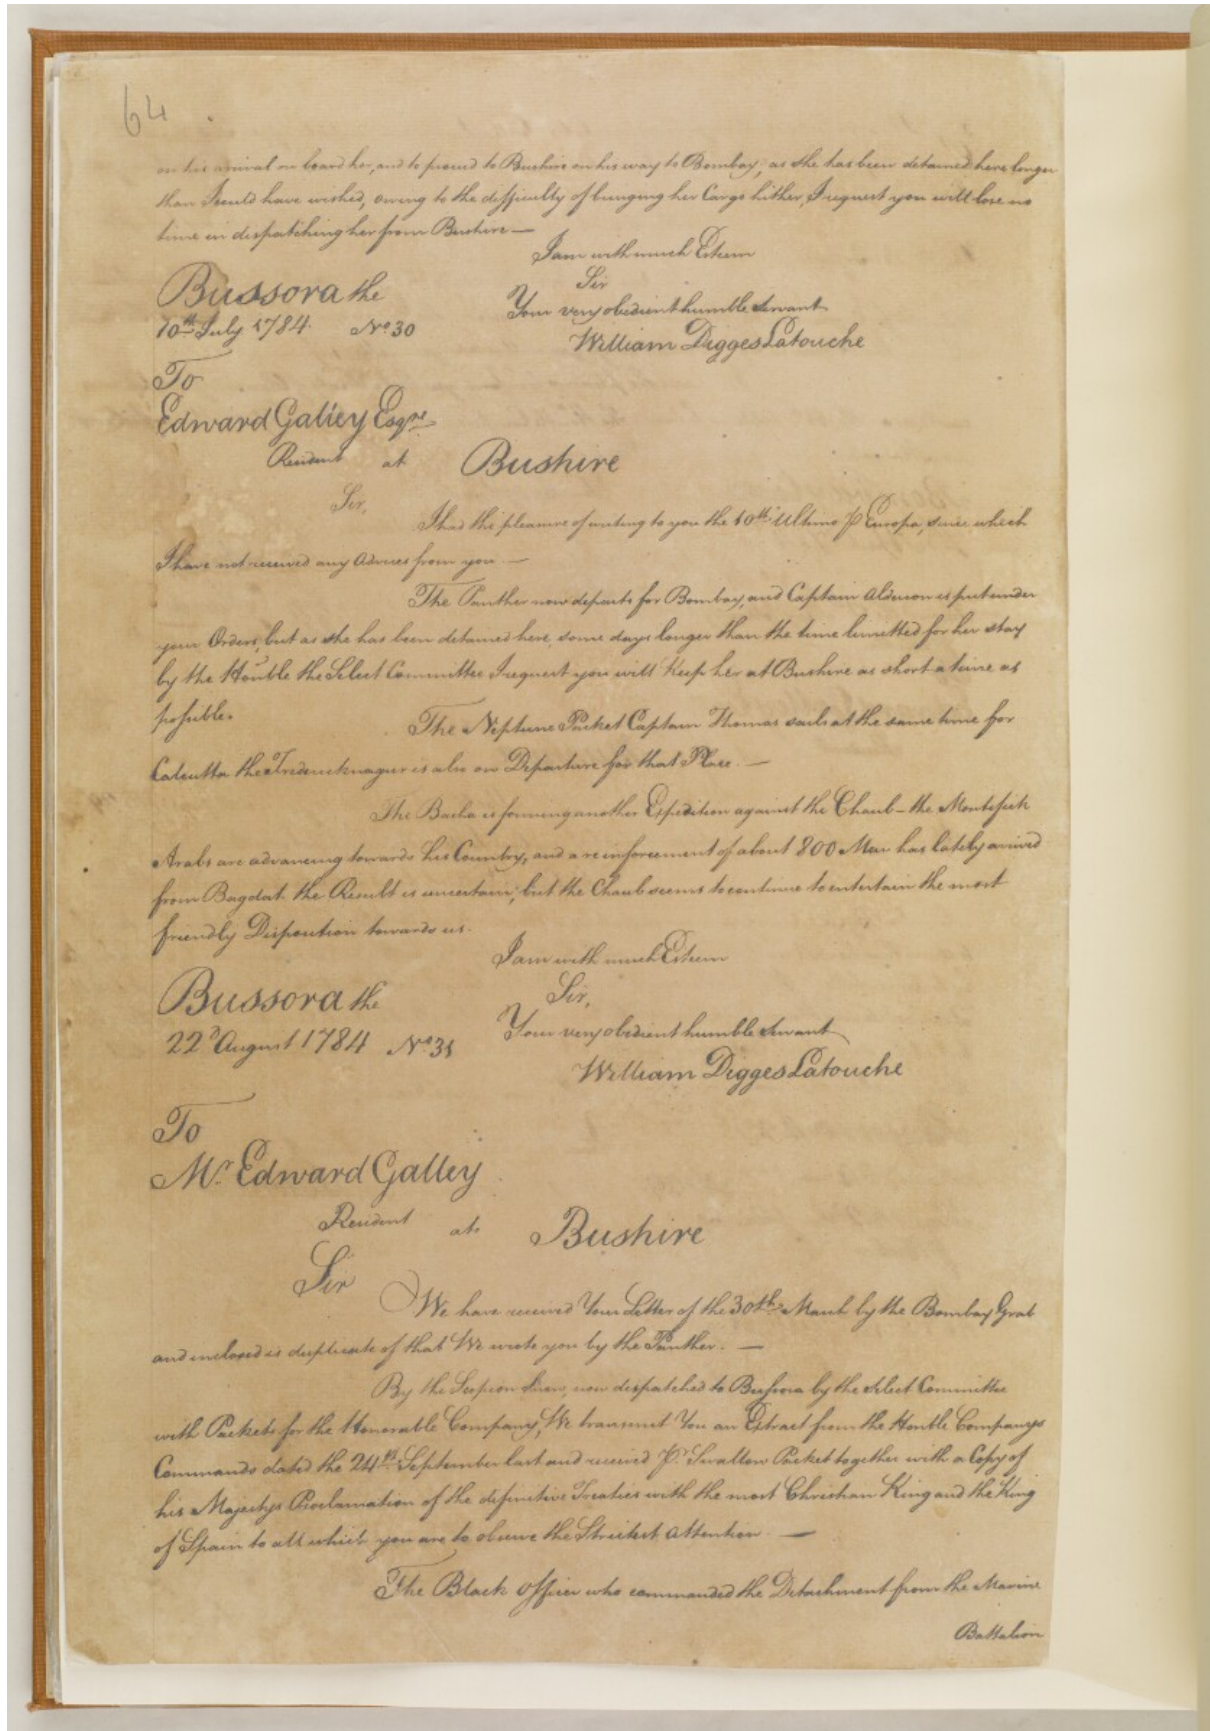 64
on his arrival on board her, and to proceed to Bushire on his way to Bombay; as she has been detained here longer
than I could have wished, owing to the difficulty of bringing her Cargo hither, I request you will lose no
time in dispatching her from Bushire —
I am with much Esteem
Sir
Your very obedient humble Servant
Bussora the
10th July 1784. No. 30
William Digges Latouche
To
Edward Galley Esqre
Resident at Bushire
Sir,
I had the pleasure of writing to you the 10th Ultimo P Europa, since which
I have not received any Advices from you —
The Panther now departs for Bombay, and Captain Alderson is put under
your Orders, but as she has been detained here, some days longer than the time limitted for her stay
by the Honble the Select Committee I request you will keep her at Bushire as short a time as
possible.
The Neptune Packet Captain Thomas sails at the same time for
Calcutta the Fredericknagur is also on Departure for that Place. —
The Bacha is forming another Expedition against the Chaub - the Montefick
Arabs are advancing towards his Country, and a reinforcement of about 800 Men has lately arrived
from Bagdat. the Result is uncertain; but the Chaub seems to continue to entertain the most
friendly Disposition towards us.
I am with much Esteem
Sir,
Your very obedient humble Servant
Bussora the
22d August 1784 No. 31
William Digges Latouche
To
Mr. Edward Galley
Resident at Bushire
Sir
We have received Your Letter of the 30th March by the Bombay Grab
and inclosed is duplicate of that We wrote you by the Panther. —
By the Scorpion Snow, now dispatched to Bussora by the Select Committee
with Packets for the Honorable Company, We transmit You an Extract from the Honble Companys
Commands dated the 24th September last and received Pr. Swallow Packet together with a Copy of
his Majestys Proclamation of the definitive Treaties with the most Christian King and the King
of Spain to all which you are to observe the Strictest Attention. —
The Black officer who commanded the Detachment from the Marine
Battalion